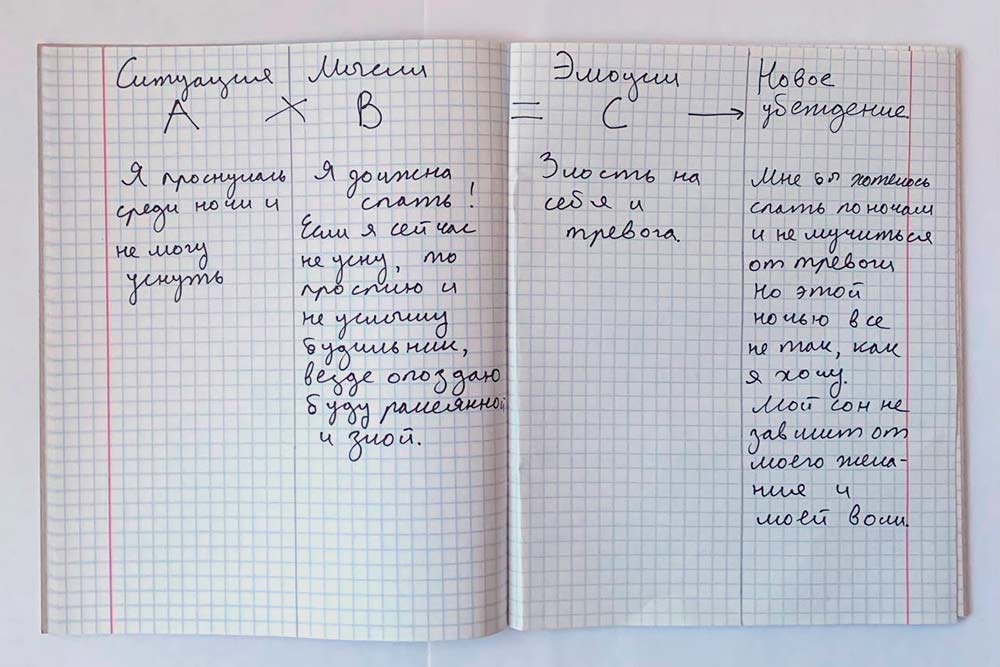 Ситуация
A
×
Мысли
B
=
Эмоции
C
→
Новое
убеждение.
Я проснулась
среди ночи и
не могу
уснуть
Я должна
спать!
Если я сейчас
не усну, то
просплю и
не услышу
будильник,
везде опоздаю
буду рассеянной
и злой.
Злость на
себя и
тревога.
Мне бы хотелось
спать по ночам
и не мучиться
от тревоги
Но этой
ночью все
не так, как
я хочу.
Мой сон не
зависит от
моего жела-
ния и
моей воли.